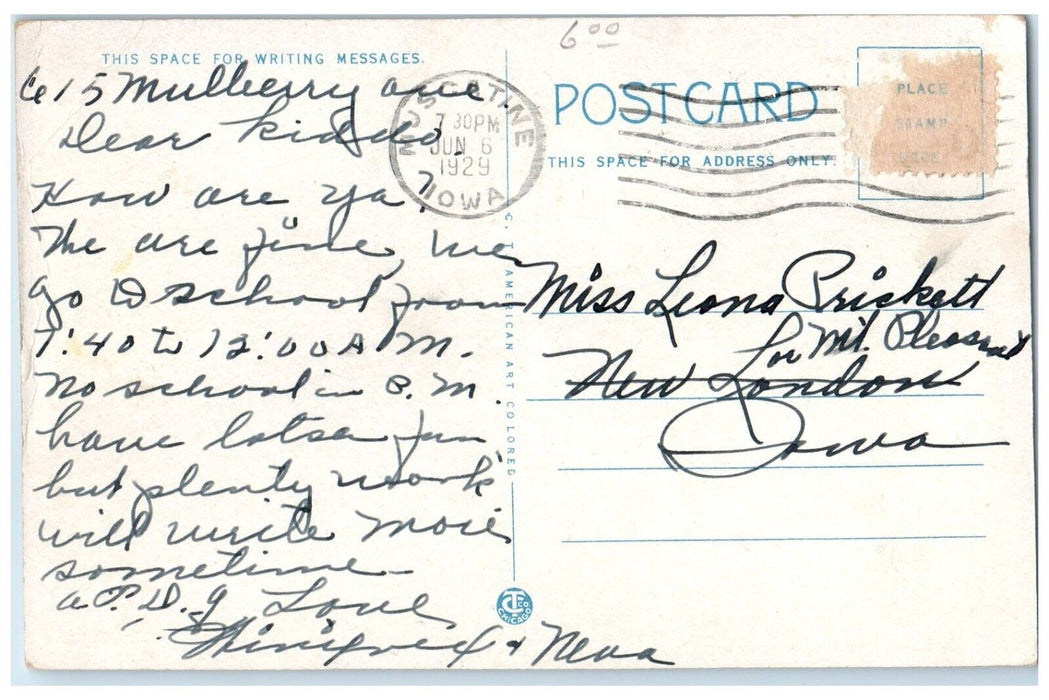 6⁰⁰
THIS SPACE FOR WRITING MESSAGES.
615 Mulberry ave.
Dear kiddo,
How are ya?
The are fine, we
go to school from
7:40 to 12:00 A.M.
no school in P.M.
have lotsa fun
but plenty work
will write more
sometime
a.P.D.g Love
Winifred + Neva
MUSCATINE
7 30PM
JUN 6
1929
IOWA
POST CARD
THIS SPACE FOR ADDRESS ONLY.
PLACE
STAMP
HERE
Miss Leona Prickett
Mt. Pleasant
New London
Iowa
C. T. AMERICAN ART COLORED
CHICAGO